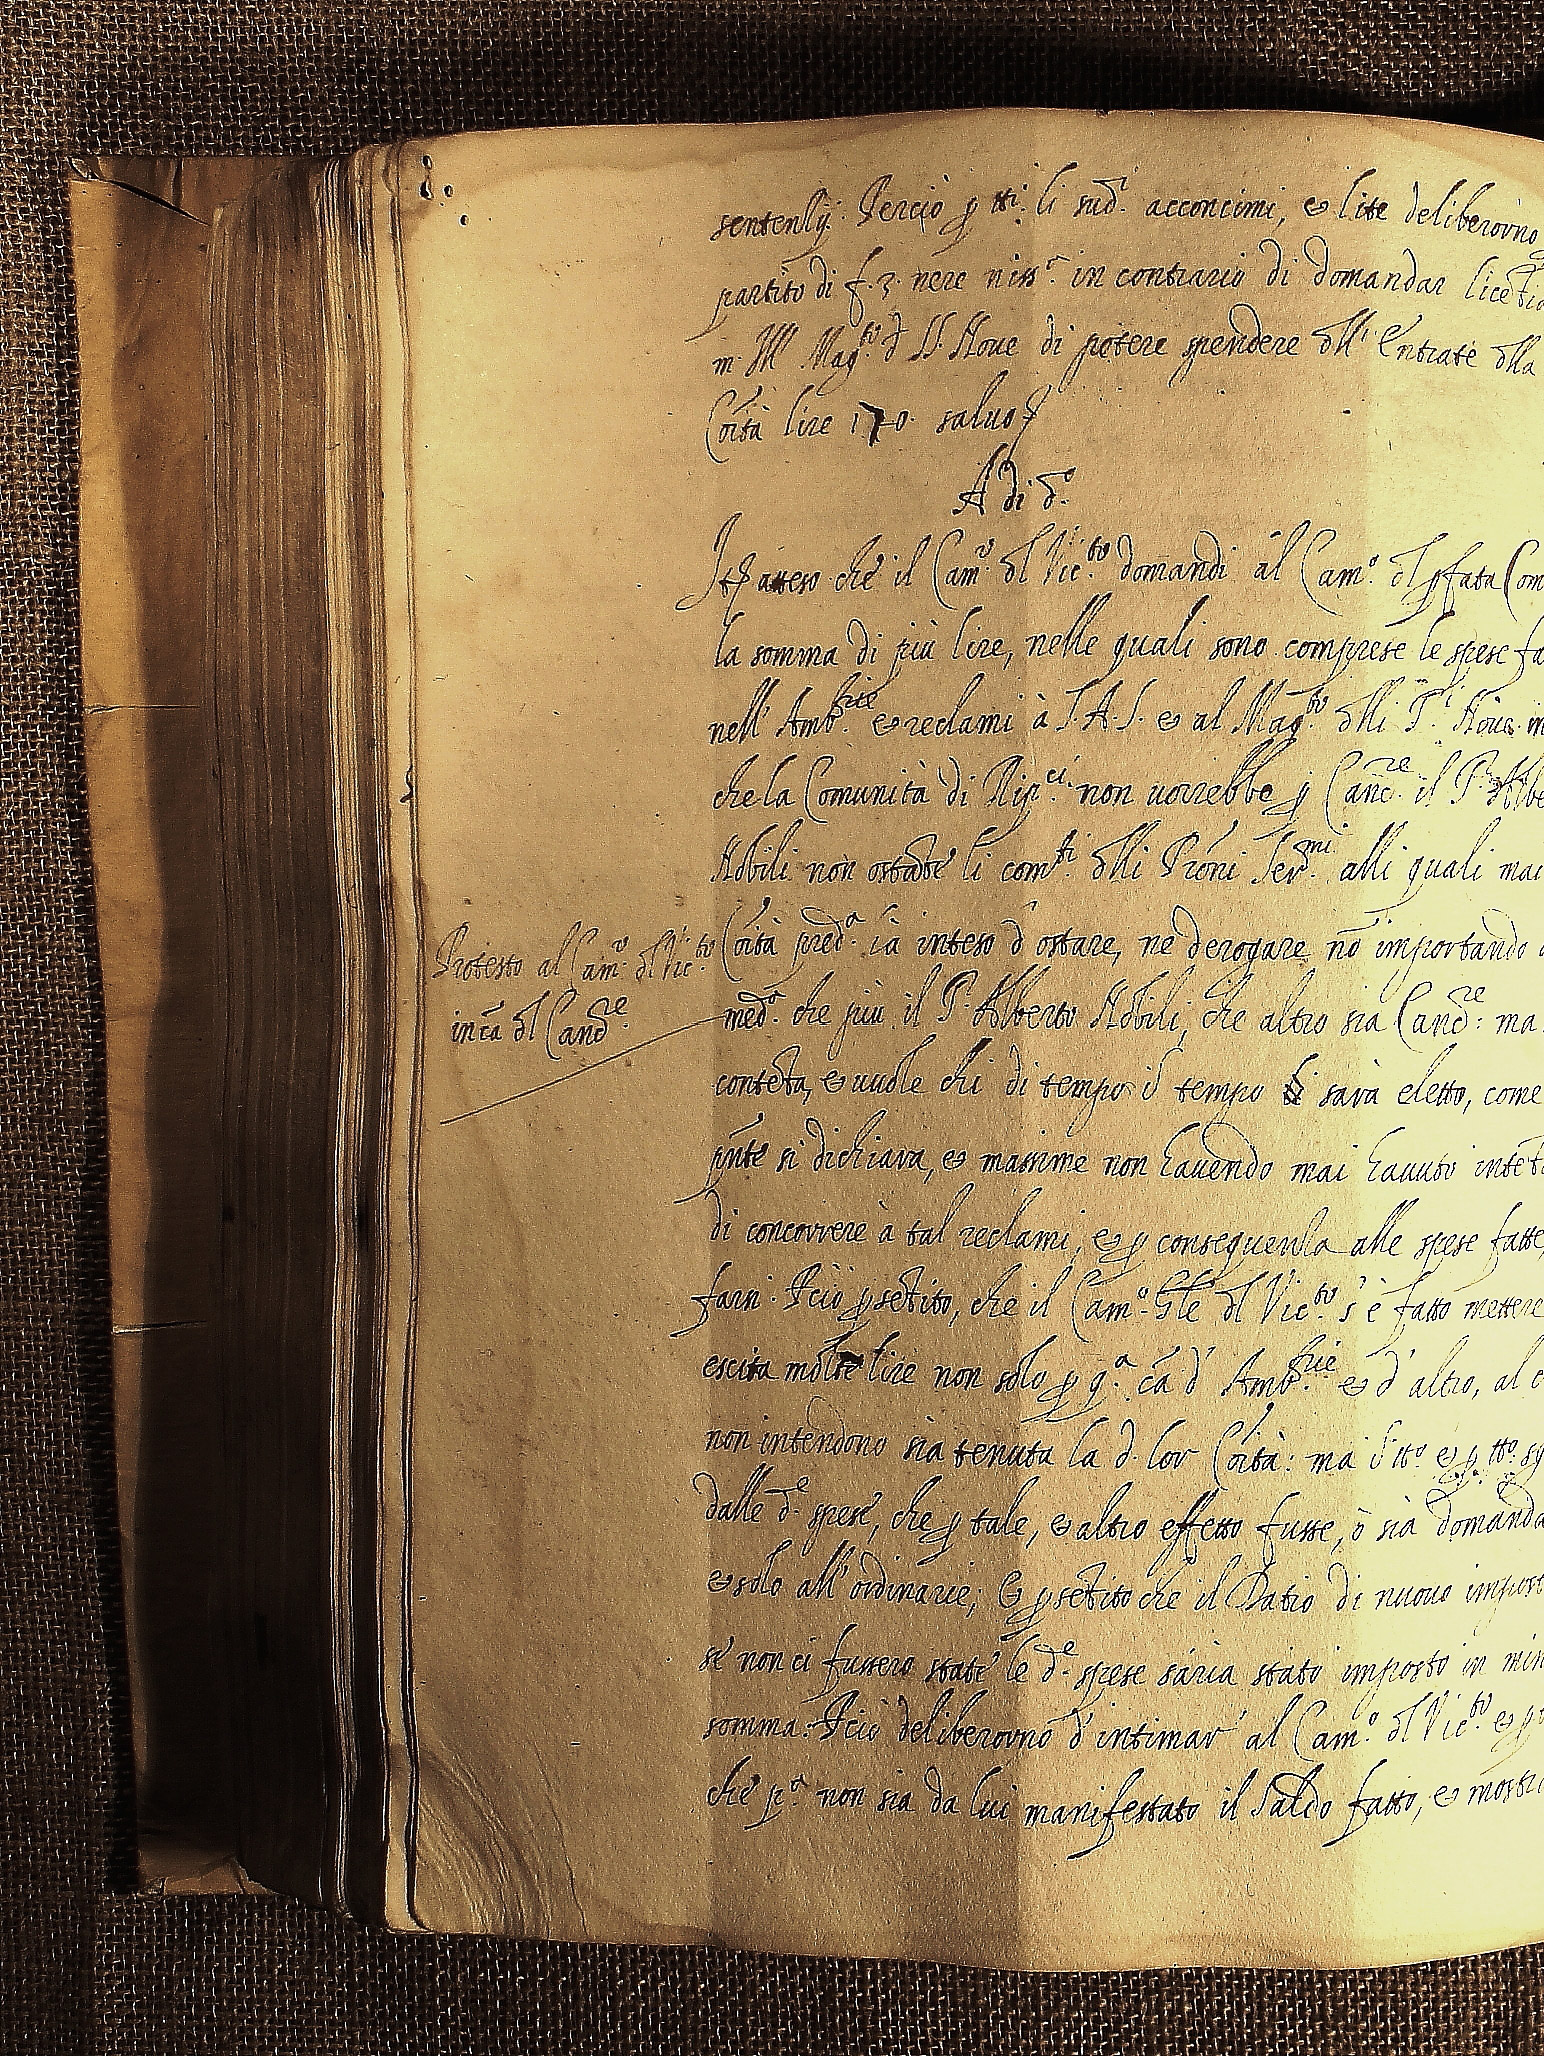 Perciò p tti li sud. acconcimi, & lite deliberorno
partito di f 3 nere niss.o in contrario di domandar
m. Ill. Mag.to d SS. Noue di potere spendere dll' Entrate dlla
Coītà lire 170. saluo
A di d.o
It. atteso che il Cam.o dl Vic.to domandi al Cam.o dl pfata Com
la somma di più lire, nelle quali sono comprese le spese fa
nell' Amb.rie & reclami à S.A.S. & al Mag.to dlli S.i Noue
che la Comunità di non uorrebbe p Canc.re il S. Albe
Nobili non ostāte li com.ti dlli Prōni Ser.mi alli quali mai
Coītà pred.a īa inteso d' ostare, ne derogare nō importando
Protesto al Cam.o dl Vic.to
in cā dl Canc.re
med.a che più il S. Alberto Nobili, che altro sia Canc.re: ma
contēta, & uuole chi di tempo ī tempo sarà eletto, come
pnte si dichiara, & massime non hauendo mai hauuto intēt
di concorrere à tal reclami, & p consequenza alle spese fatte,
farsi. Pciò p sētito, che il Cam.o Gle dl Vic.to s' è fatto mettere
escita molte lire non solo p q.a cā d' Amb.rie & d' altro, al
non intendono sia tenuta la d. lor Coītà: ma ī tto & p tto
dalle d.e spese, che p tale, & altro effetto fusse, ò sia domanda
& solo all' ordinarie; & p sētito che il Datio di nuouo impost
se non ci fussero state le d.e spese saria stato imposto in min
somma. Pciò deliberorno d' intimar' al Cam.o dl Vic.to & p
che p.a non sia da lui manifestato il Saldo fatto, & mostr